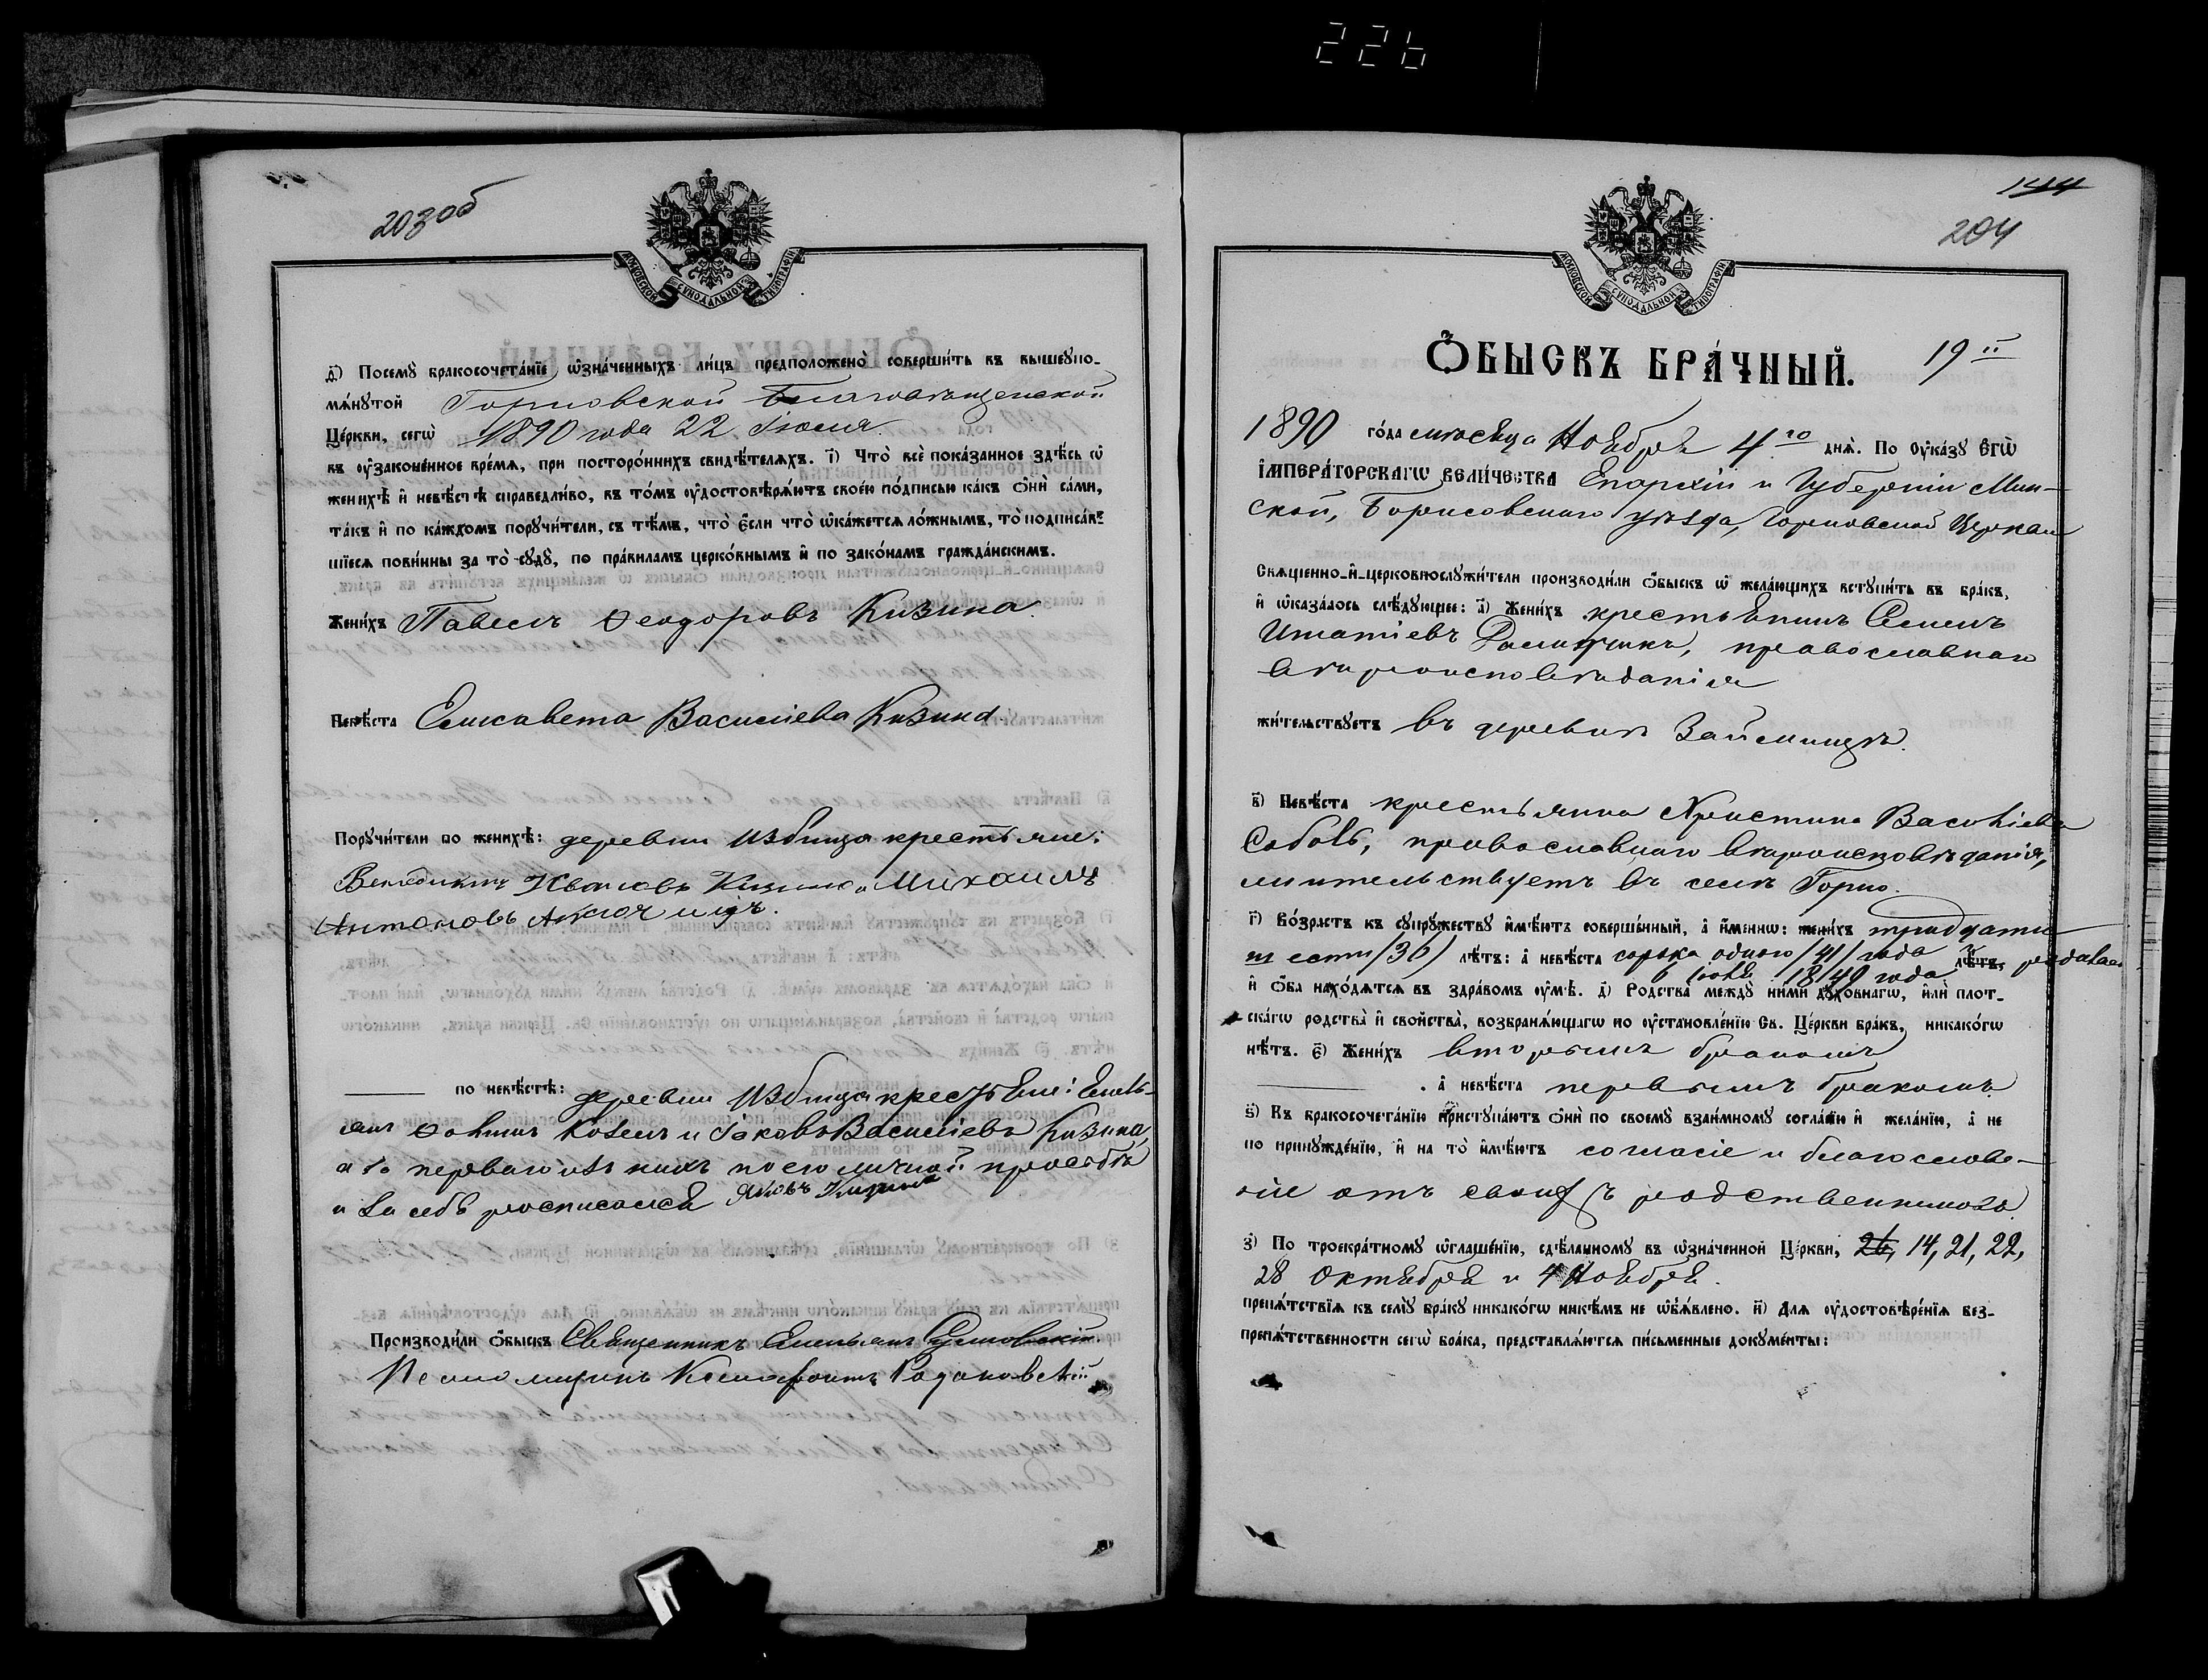 226
203об
МОСКОВСКОЙ СУНОДАЛЬНОЙ ТИПОГРАФІИ
д҃і) Посемꙋ бракосочета́нїе ѡ҆зна́ченныхъ ли́цъ предположено̀ соверши́ть въ вышеꙋпо-
мѧ́нꙋтой Горновской Благовѣщенской
Це́ркви, сегѡ̀ 1890 года 22 Іюля
въ ᲂу҆зако́ненное вре́мѧ, при посторо́ннихъ свидѣ́телѧхъ. і҃) Что̀ всѐ пока́занное здѣ́сь ѡ҆
женихѣ̀ и҆ невѣ́стѣ справедли́во, въ то́мъ ᲂу҆достовѣрѧ́ютъ свое́ю по́дписью ка́къ ѻ҆нѝ са́ми,
та́къ и҆ по ка́ждомъ порꙋчи́тели, съ тѣ́мъ, что̀ є҆́сли что̀ ѡ҆ка́жетсѧ ло́жнымъ, то̀ подписа́в-
шїесѧ пови́нны за то̀ сꙋдꙋ̀, по пра́виламъ церко́внымъ и҆ по зако́намъ гражда́нскимъ.
Жени́хъ Павелъ Ѳеодоровъ Кизина
Невѣ́ста Елисавета Василіева Кизина.
Порꙋчи́тели по женихѣ̀: деревни Избища крестьяне:
Венедиктъ Ивановъ Кизина и Михаилъ
Антоновъ
по невѣ́стѣ: деревни Избища крестьяне: Емель-
янъ Ѳоминъ Козелъ и Іаковъ Василіевъ Кизина,
а за перваго изъ нихъ по его личной просьбѣ
и за себя росписался Яковъ Кизина
Производи́ли ѻ҆́быскъ Священникъ Емельянъ
Псаломщикъ Ксенофонтъ
144
204
МОСКОВСКОЙ СУНОДАЛЬНОЙ ТИПОГРАФІИ
Ѻ҆́БЫСКЪ БРА́ЧНЫЙ. 19й
1890 го́да мѣсяца Ноября 4го днѧ̀. По ᲂу҆ка́зꙋ Є҆гѡ̀
І҆мпера́торскагѡ Вели́чества Епархіи и Губерніи Мин-
ской, Борисовскаго уѣзда, Горновской Церкви
Свѧще́нно-и҆-церковнослꙋжи́тели производи́ли ѻ҆́быскъ ѡ҆ жела́ющихъ встꙋпи́ть въ бра́къ,
и҆ ѡ҆каза́лось слѣ́дꙋющее: а҃) Жени́хъ крестьянинъ Семенъ
Игнатіевъ, православнаго
вѣроисповѣданія
жи́тельствꙋетъ въ деревнѣ Займищѣ.
в҃) Невѣ́ста крестьянина Христина Василіева
Соболь, православнаго вѣроисповѣданія,
жительствуетъ въ селѣ Горно.
г҃) Во́зрастъ къ сꙋпрꙋ́жествꙋ и҆мѣ́ютъ соверше́нный, а҆ и҆́меннѡ: жени́хъ тридцати
шести /36/ лѣ́тъ: а҆ невѣ́ста сорока одного /41/ года лѣ́тъ,
6 Іюня 1849 года
и҆ ѻ҆́ба нахо́дѧтсѧ въ здра́вомъ ᲂу҆мѣ̀. д҃) Родства̀ междꙋ̀ ни́ми дꙋхо́внагѡ, и҆лѝ плот-
ска́гѡ родства̀ и҆ свойства̀, возбранѧ́ющагѡ по ᲂу҆становле́нїю Св. Це́ркви бра́къ, никако́гѡ
нѣ́тъ. є҃) Жени́хъ вторымъ бракомъ
. а҆ невѣ́ста первымъ бракомъ
ѕ҃) Къ бракосочета́нїю пристꙋпа́ютъ ѻ҆нѝ по своемꙋ̀ взаи́мномꙋ согла́сїю и҆ жела́нїю, а҆ не
по принꙋжде́нїю, и҆ на то̀ и҆мѣ́ютъ согласіе и благослове-
ніе отъ своихъ родственниковъ.
з҃) По троекра́тномꙋ ѡ҆глаше́нїю, сдѣ́ланномꙋ въ ѡ҆зна́ченной Це́ркви, 26, 14, 21, 22,
28 Октября и 4 Ноября.
препѧ́тствїѧ къ семꙋ̀ бра́кꙋ никако́гѡ никѣ́мъ не ѡ҆б̾ѧ́влено. и҃) Длѧ ᲂу҆достовѣре́нїѧ без-
препѧ́тственности сегѡ̀ бра́ка, представлѧ́ютсѧ пи́сьменные докꙋме́нты: